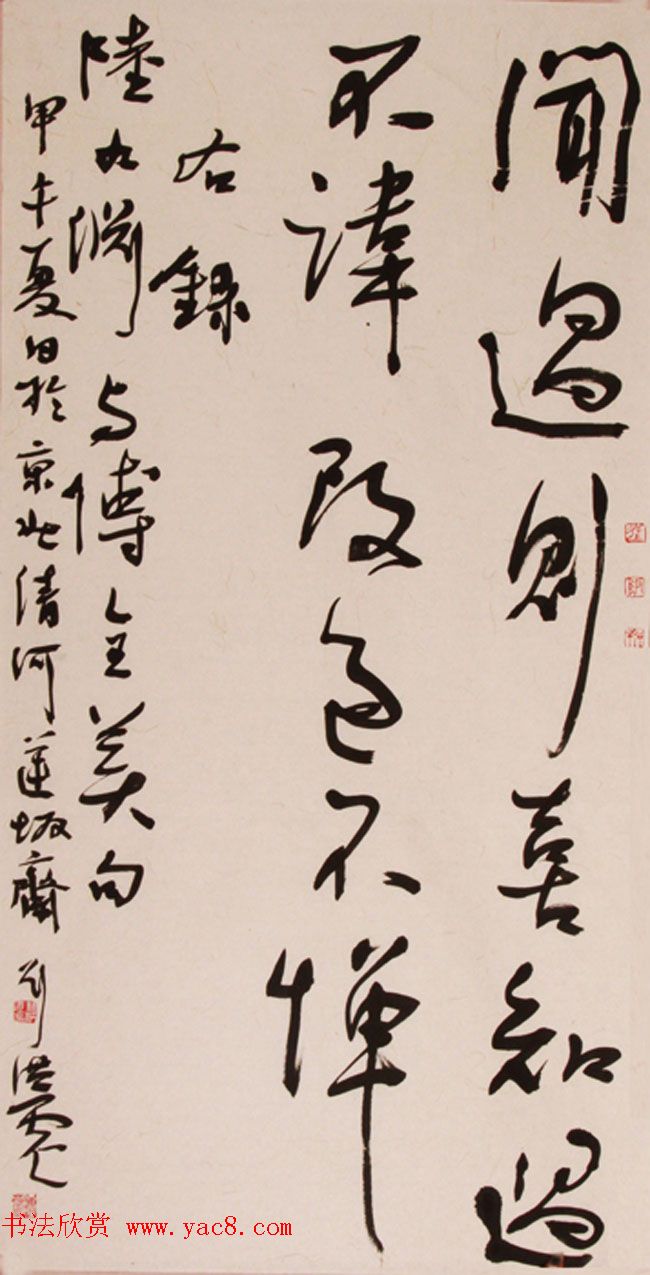 聞過則喜知過
不諱改過不憚
右錄
陸九淵与傅全美句
甲午夏日於京北清河蓮坂齋 劉洪彪
书法欣赏 www.yac8.com